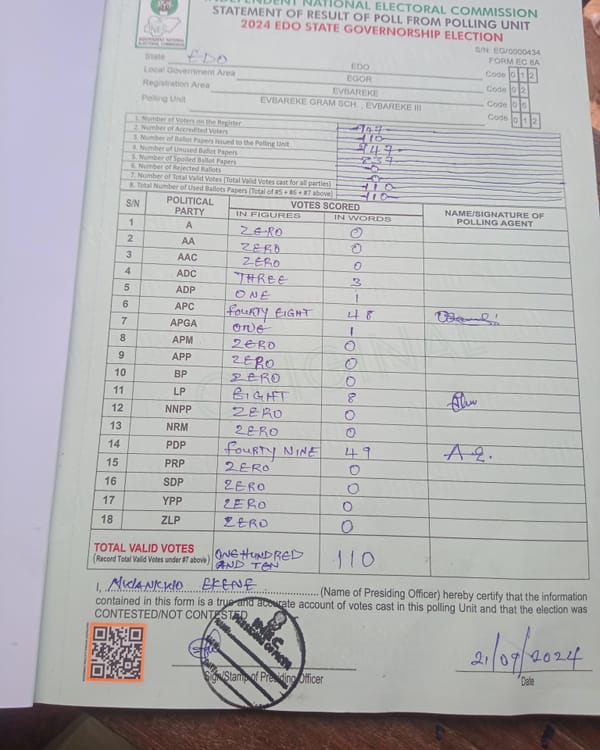 INDEPENDENT NATIONAL ELECTORAL COMMISSION
STATEMENT OF RESULT OF POLL FROM POLLING UNIT
2024 EDO STATE GOVERNORSHIP ELECTION
S/N: EG/0000434
FORM EC 8A
State EDO EDO Code 0 1 2
Local Government Area EGOR Code 0 2
Registration Area EVBAREKE Code 0 6
Polling Unit EVBAREKE GRAM SCH., EVBAREKE III Code 0 1 2
1. Number of Voters on the Register 947
2. Number of Accredited Voters 110
3. Number of Ballot Papers Issued to the Polling Unit 947
4. Number of Unused Ballot Papers 837
5. Number of Spoiled Ballot Papers 0
6. Number of Rejected Ballots 0
7. Number of Total Valid Votes (Total Valid Votes cast for all parties) 110
8. Total Number of Used Ballots Papers (Total of #5 + #6 + #7 above) 110
S/N POLITICAL PARTY VOTES SCORED NAME/SIGNATURE OF POLLING AGENT
IN FIGURES IN WORDS
1 A ZERO 0
2 AA ZERO 0
3 AAC ZERO 0
4 ADC THREE 3
5 ADP ONE 1
6 APC FOURTY EIGHT 48
7 APGA ONE 1
8 APM ZERO 0
9 APP ZERO 0
10 BP ZERO 0
11 LP EIGHT 8
12 NNPP ZERO 0
13 NRM ZERO 0
14 PDP FOURTY NINE 49 A-2.
15 PRP ZERO 0
16 SDP ZERO 0
17 YPP ZERO 0
18 ZLP ZERO 0
TOTAL VALID VOTES ONE HUNDRED AND TEN 110
(Record Total Valid Votes under #7 above)
I, EKENE (Name of Presiding Officer) hereby certify that the information
contained in this form is a true and accurate account of votes cast in this polling Unit and that the election was
CONTESTED/NOT CONTESTED
INEC
21/09/2024
Sign/Stamp of Presiding Officer
Date